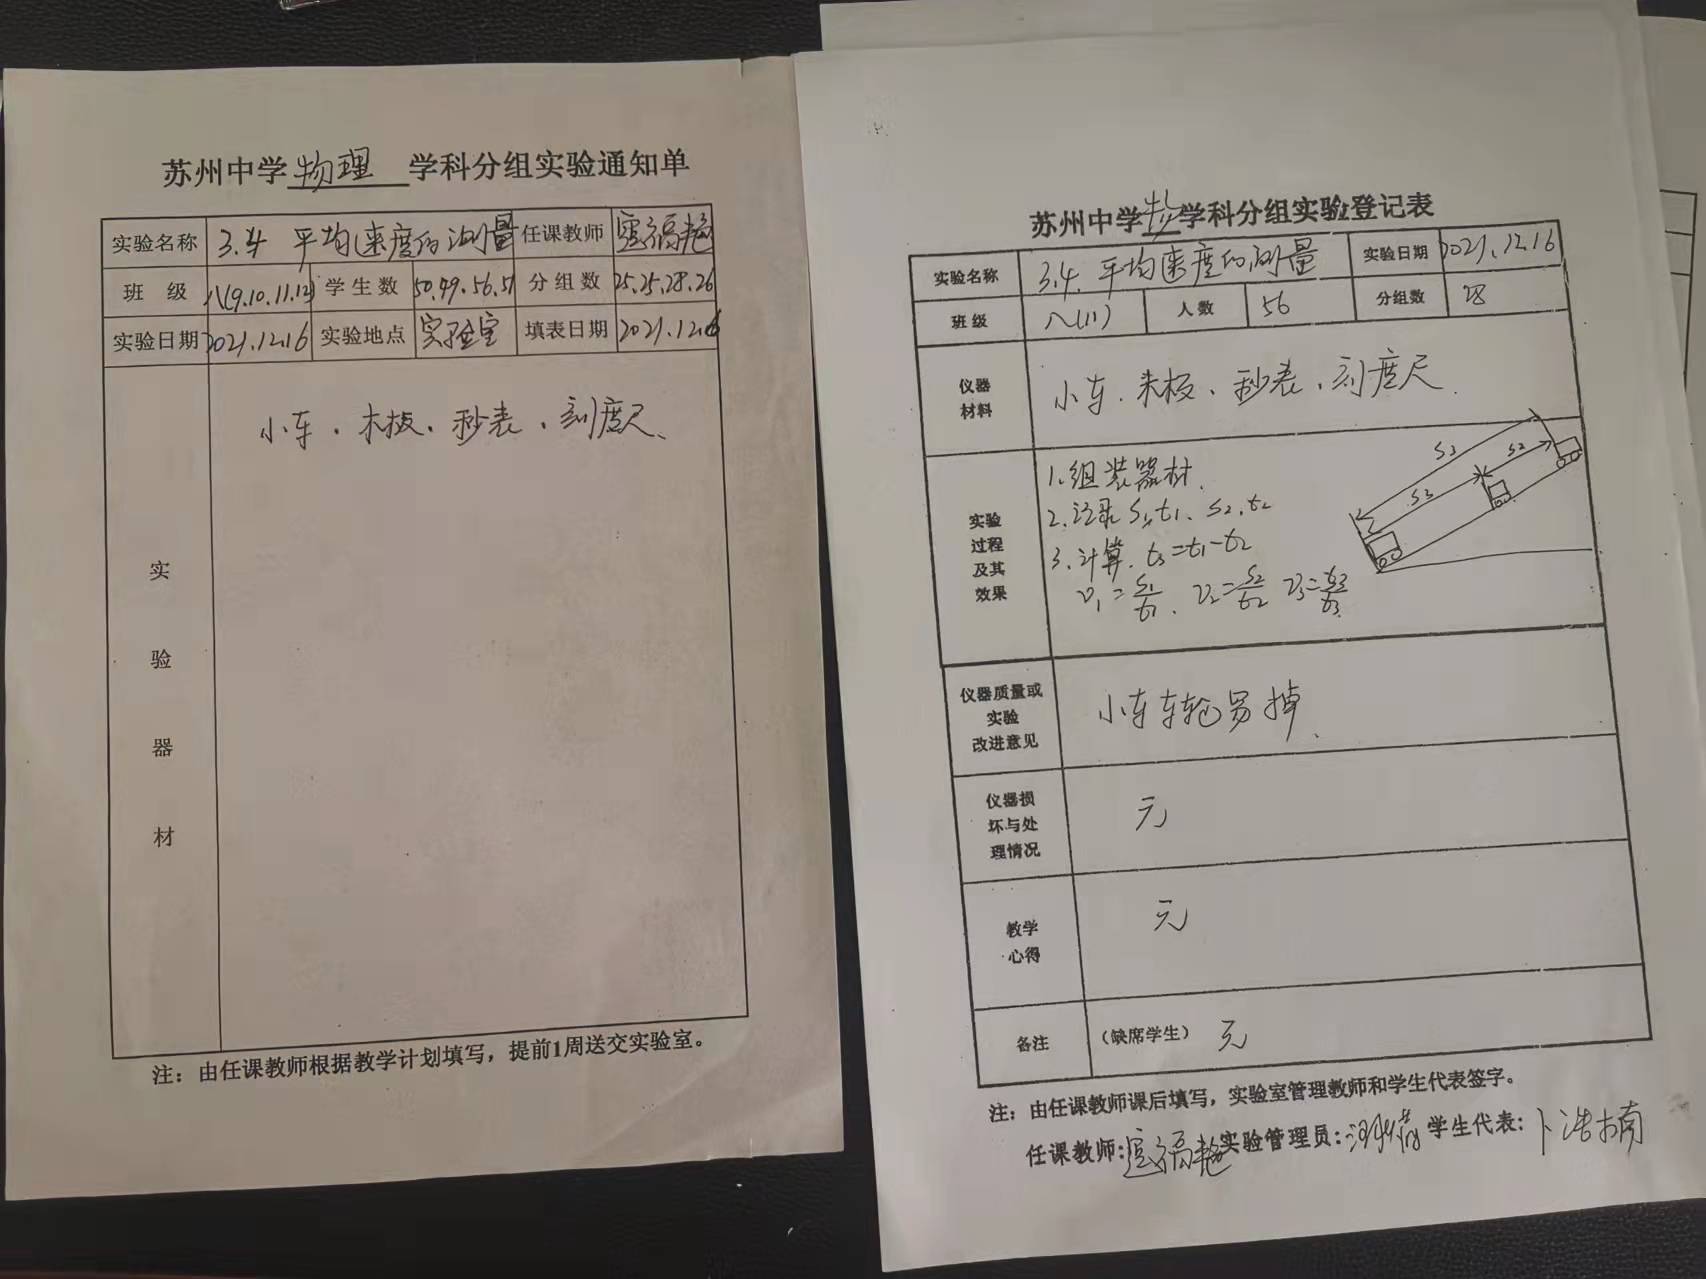 苏州中学物理学科分组实验通知单
实验名称 3.4 平均速度的测量 任课教师
班级 八(9.10.11.12) 学生数 50.49.56.51 分组数 25.25.28.26
实验日期 2021.12.16 实验地点 实验室 填表日期 2021.12.6
实验器材
小车、木板、秒表、刻度尺、
注：由任课教师根据教学计划填写，提前1周送交实验室。
苏州中学物学科分组实验登记表
实验名称 3.4. 平均速度的测量 实验日期 2021.12.16
班级 八(11) 人数 56 分组数 28
仪器
材料
小车、木板、秒表、刻度尺.
实验
过程
及其
效果
1.组装器材.
2.记录 S1,t1、S2,t2
3.计算. t3=t1-t2
v1=S1/t1. v2=S2/t2 v3=S3/t3
S1
S2
S3
仪器质量或
实验
改进意见
小车车轮易掉、
仪器损
坏与处
理情况
无
教学
心得
无
备注 (缺席学生) 无
注：由任课教师课后填写，实验室管理教师和学生代表签字。
任课教师: 实验管理员: 学生代表: 卜浩楠